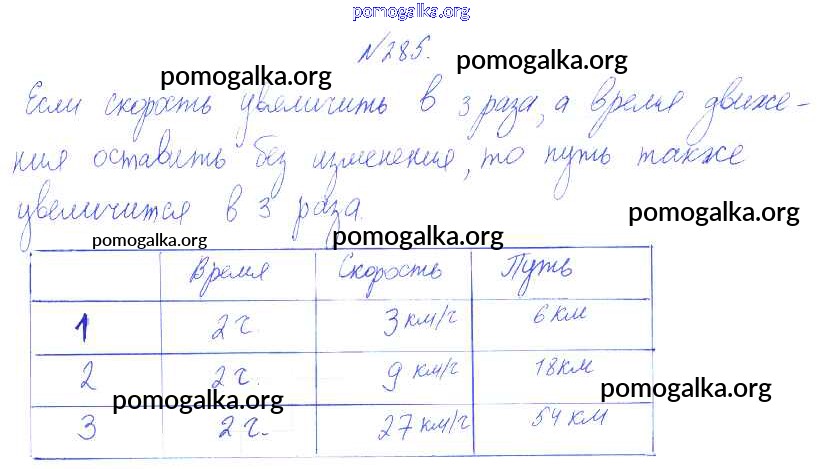 pomogalka.org
№285.
pomogalka.org
pomogalka.org
Если скорость увеличить в 3 раза, а время движе-
ния оставить без изменения, то путь также
увеличится в 3 раза.
pomogalka.org
pomogalka.org
pomogalka.org
Время Скорость Путь
1 2 г. 3 км/г 6 км
2 2 г. 9 км/г 18 км
pomogalka.org
pomogalka.org
3 2 г. 27 км/г 54 км